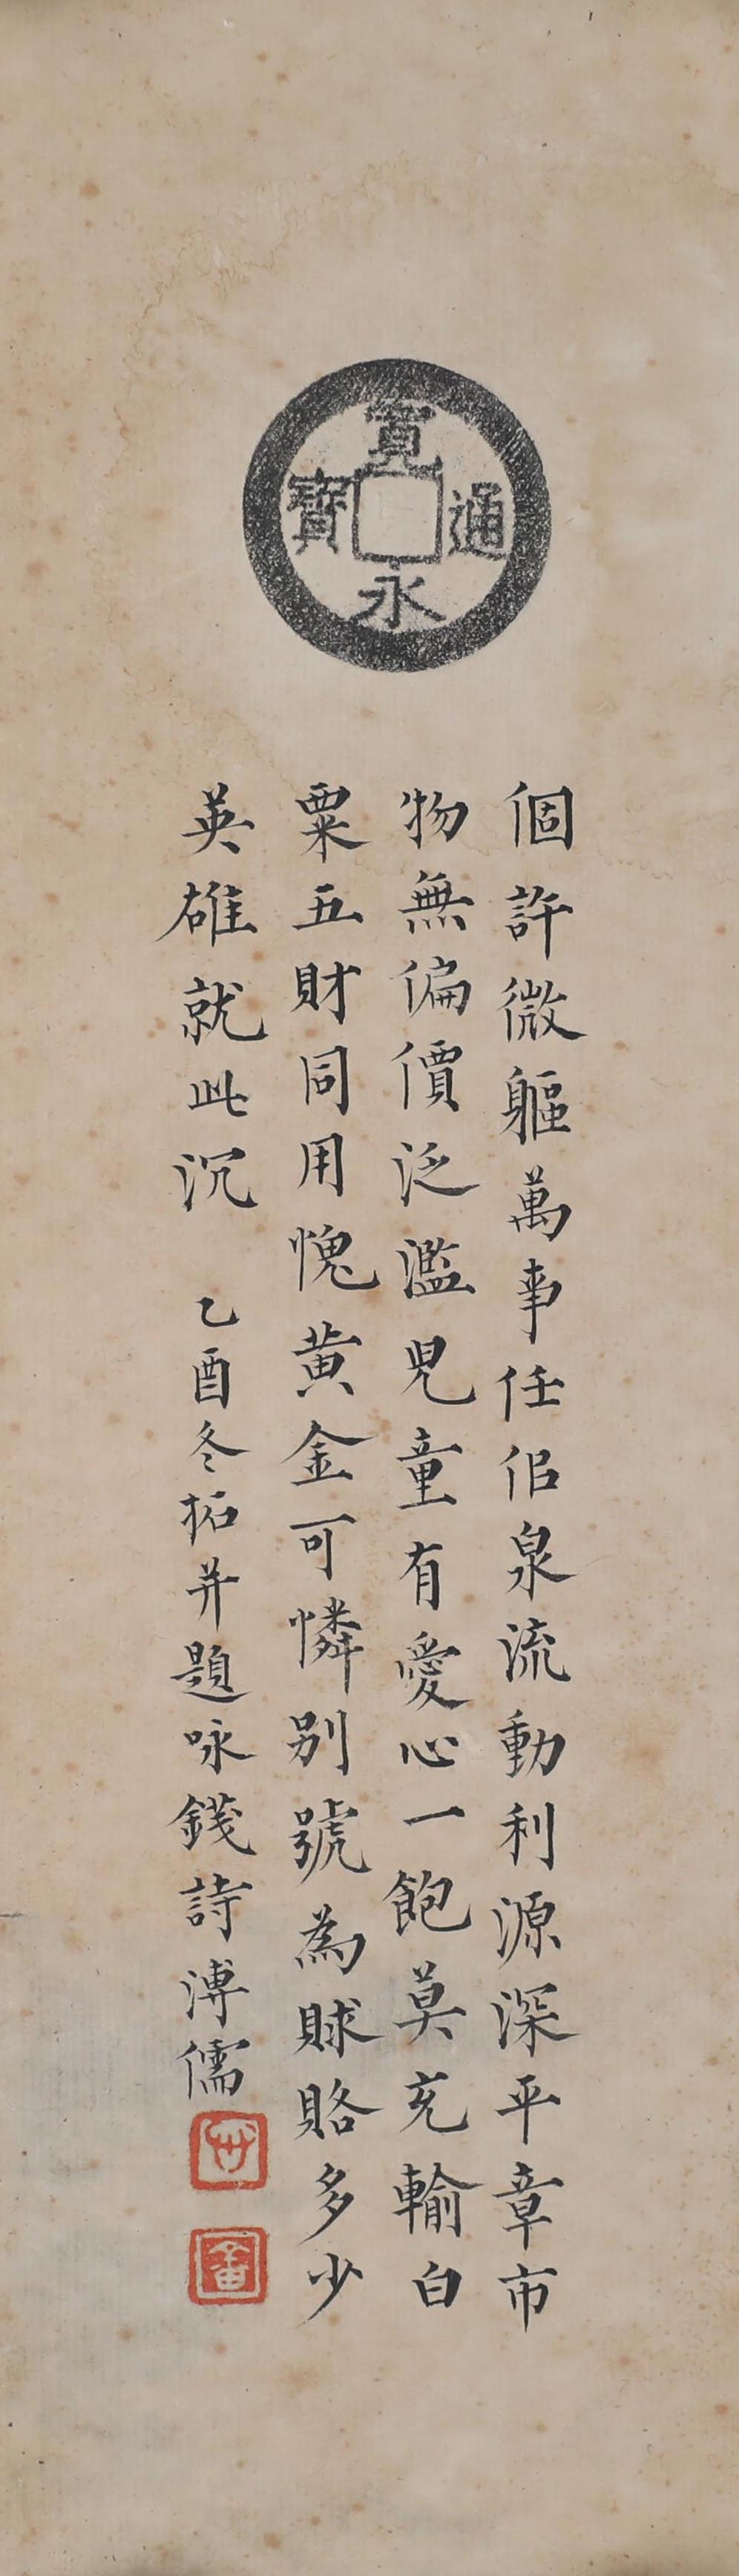 寬永通寶
個許微軀萬事任佀泉流動利源深平章市
物無偏價泛濫兒童有愛心一飽莫充輸白
粟五財同用愧黄金可憐别號為賕賂多少
英雄就此沉 乙酉冬拓并題咏錢詩溥儒